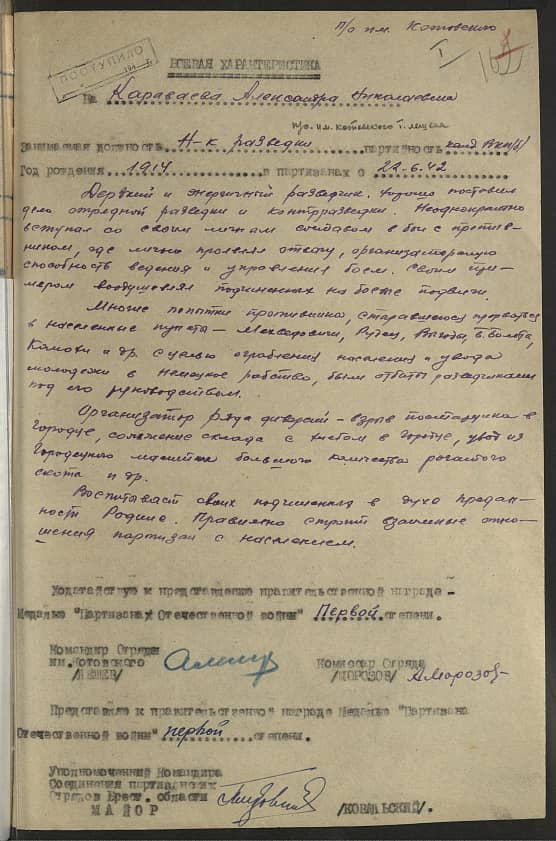 п/о им. Котовского
I
ПОСТУПИЛО
БОЕВАЯ ХАРАКТЕРИСТИКА
На Караваева Александра Николаевича
п/о. им. Котовского
Занимаемая должность Н-к разведки партийность канд ВКП/б/
Год рождения 1914 в партизанах с 22-6.42
Дерзкий и энергичный разведчик. Хорошо поставил
дело отрядной разведки и контрразведки. Неоднократно
вступал со своим личным составом в бой с против-
ником, где лично проявлял отвагу, организаторскую
способность ведения и управления боем. Своим при-
мером воодушевлял подчиненных на боевые подвиги.
Многие попытки противника, старавшегося прорваться
в населенные пункты - Медведовичи, Рудец, Выгоды, В. Болота,
и др. с целью ограбления населения и увода
молодежи в Немецкое рабство, были отбиты разведчиками
под его руководством.
Организатор ряда диверсий - взрыв постарунка в
Городце, сожжение склада с житом в Городце, увод из
Городецкого большого количества рогатого
скота и др.
Воспитывает своих подчиненных в духе предан-
ности Родине. Правильно строит взаимные отно-
шения партизан с населением.
Ходатайствую к представлению правительственной награде -
Медалью "Партизана Отечественной войны" Первой степени.
Командир Отряда
им. Котовского
/ЛЕЩЕВ/
Комиссар Отряда
/МОРОЗОВ/ А Морозов
Представляю к правительственной награде Медалью "Партизана
Отечественной войны" первой степени.
Уполномоченный Командира
Соединения партизанских
Отрядов Брест. области
МАЙОР /КОВАЛЬСКИЙ/.